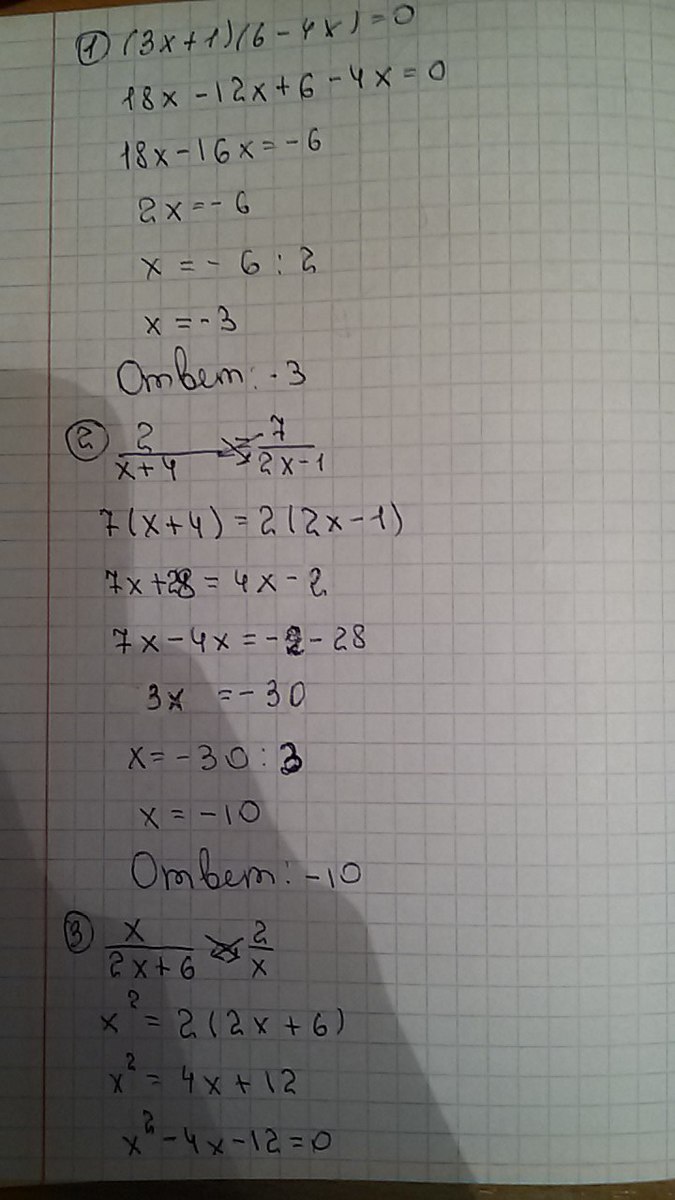 ① (3x+1)(6-4x)=0
18x-12x+6-4x=0
18x-16x=-6
2x=-6
x=-6:2
x=-3
Ответ: -3
② 2/(x+4) = 7/(2x-1)
7(x+4)=2(2x-1)
7x+28=4x-2
7x-4x=-2-28
3x=-30
x=-30:3
x=-10
Ответ: -10
③ x/(2x+6) = 2/x
x²=2(2x+6)
x²=4x+12
x²-4x-12=0